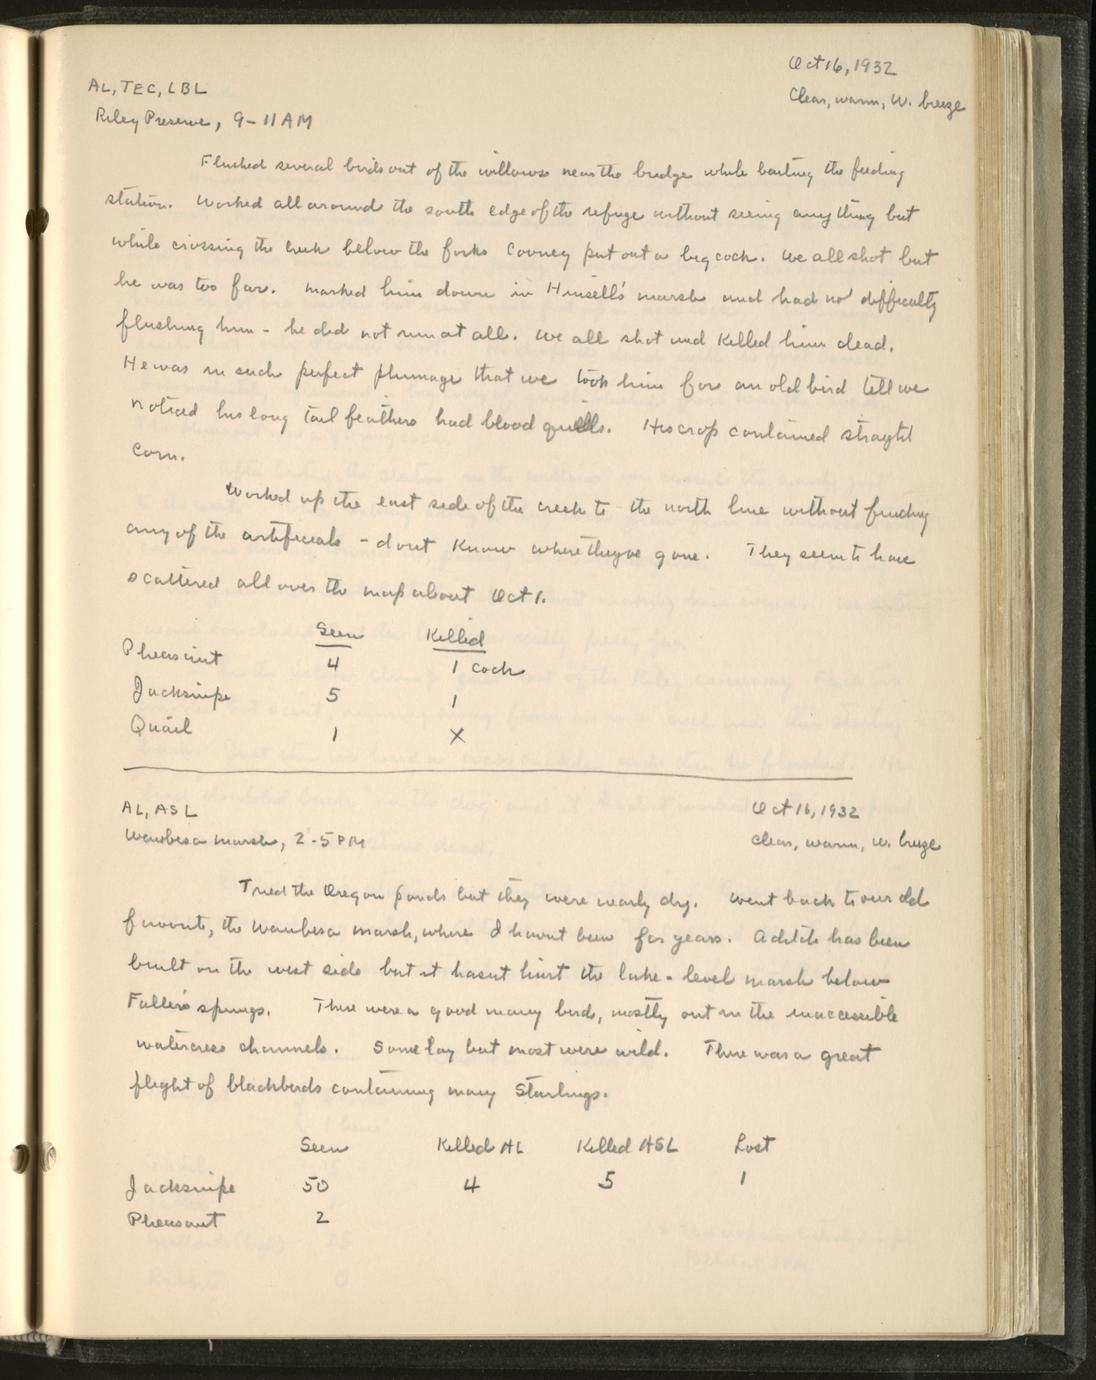 Oct 16, 1932
AL, TEC, LBL
Clear, warm, W. breeze
Riley Preserve, 9-11 AM
Flushed several birds out of the willows near the bridge while baiting the feeding
station. Worked all around the south edge of the refuge without seeing anything but
while crossing the creek below the forks Cooney put out a big cock. We all shot but
he was too far. Marked him down in marsh and had no difficulty
flushing him - he did not run at all. We all shot and killed him dead.
He was in such perfect plumage that we took him for an old bird till we
noticed his long tail feathers had blood quills. His crop contained straight
corn.
Worked up the east side of the creek to the north line without finding
any of the artificials - dont know where theyve gone. They seem to have
scattered all over the map about Oct 1.
Seen Killed
Pheasant 4 1 cock
Jacksnipe 5 1
Quail 1 X
AL, ASL
Oct 16, 1932
Waubesa Marsh, 2-5 PM
Clear, warm, W. breeze
Tried the Oregon ponds but they were nearly dry. Went back to our old
favorite, the Waubesa marsh, where I havent been for years. A ditch has been
built on the west side but it hasnt hurt the lake-level marsh below
Fuller's springs. There were a good many birds, mostly out in the inaccessible
watercress channels. Some lay but most were wild. There was a great
flight of blackbirds containing many Starlings.
Seen Killed AL Killed ASL Lost
Jacksnipe 50 4 5 1
Pheasant 2